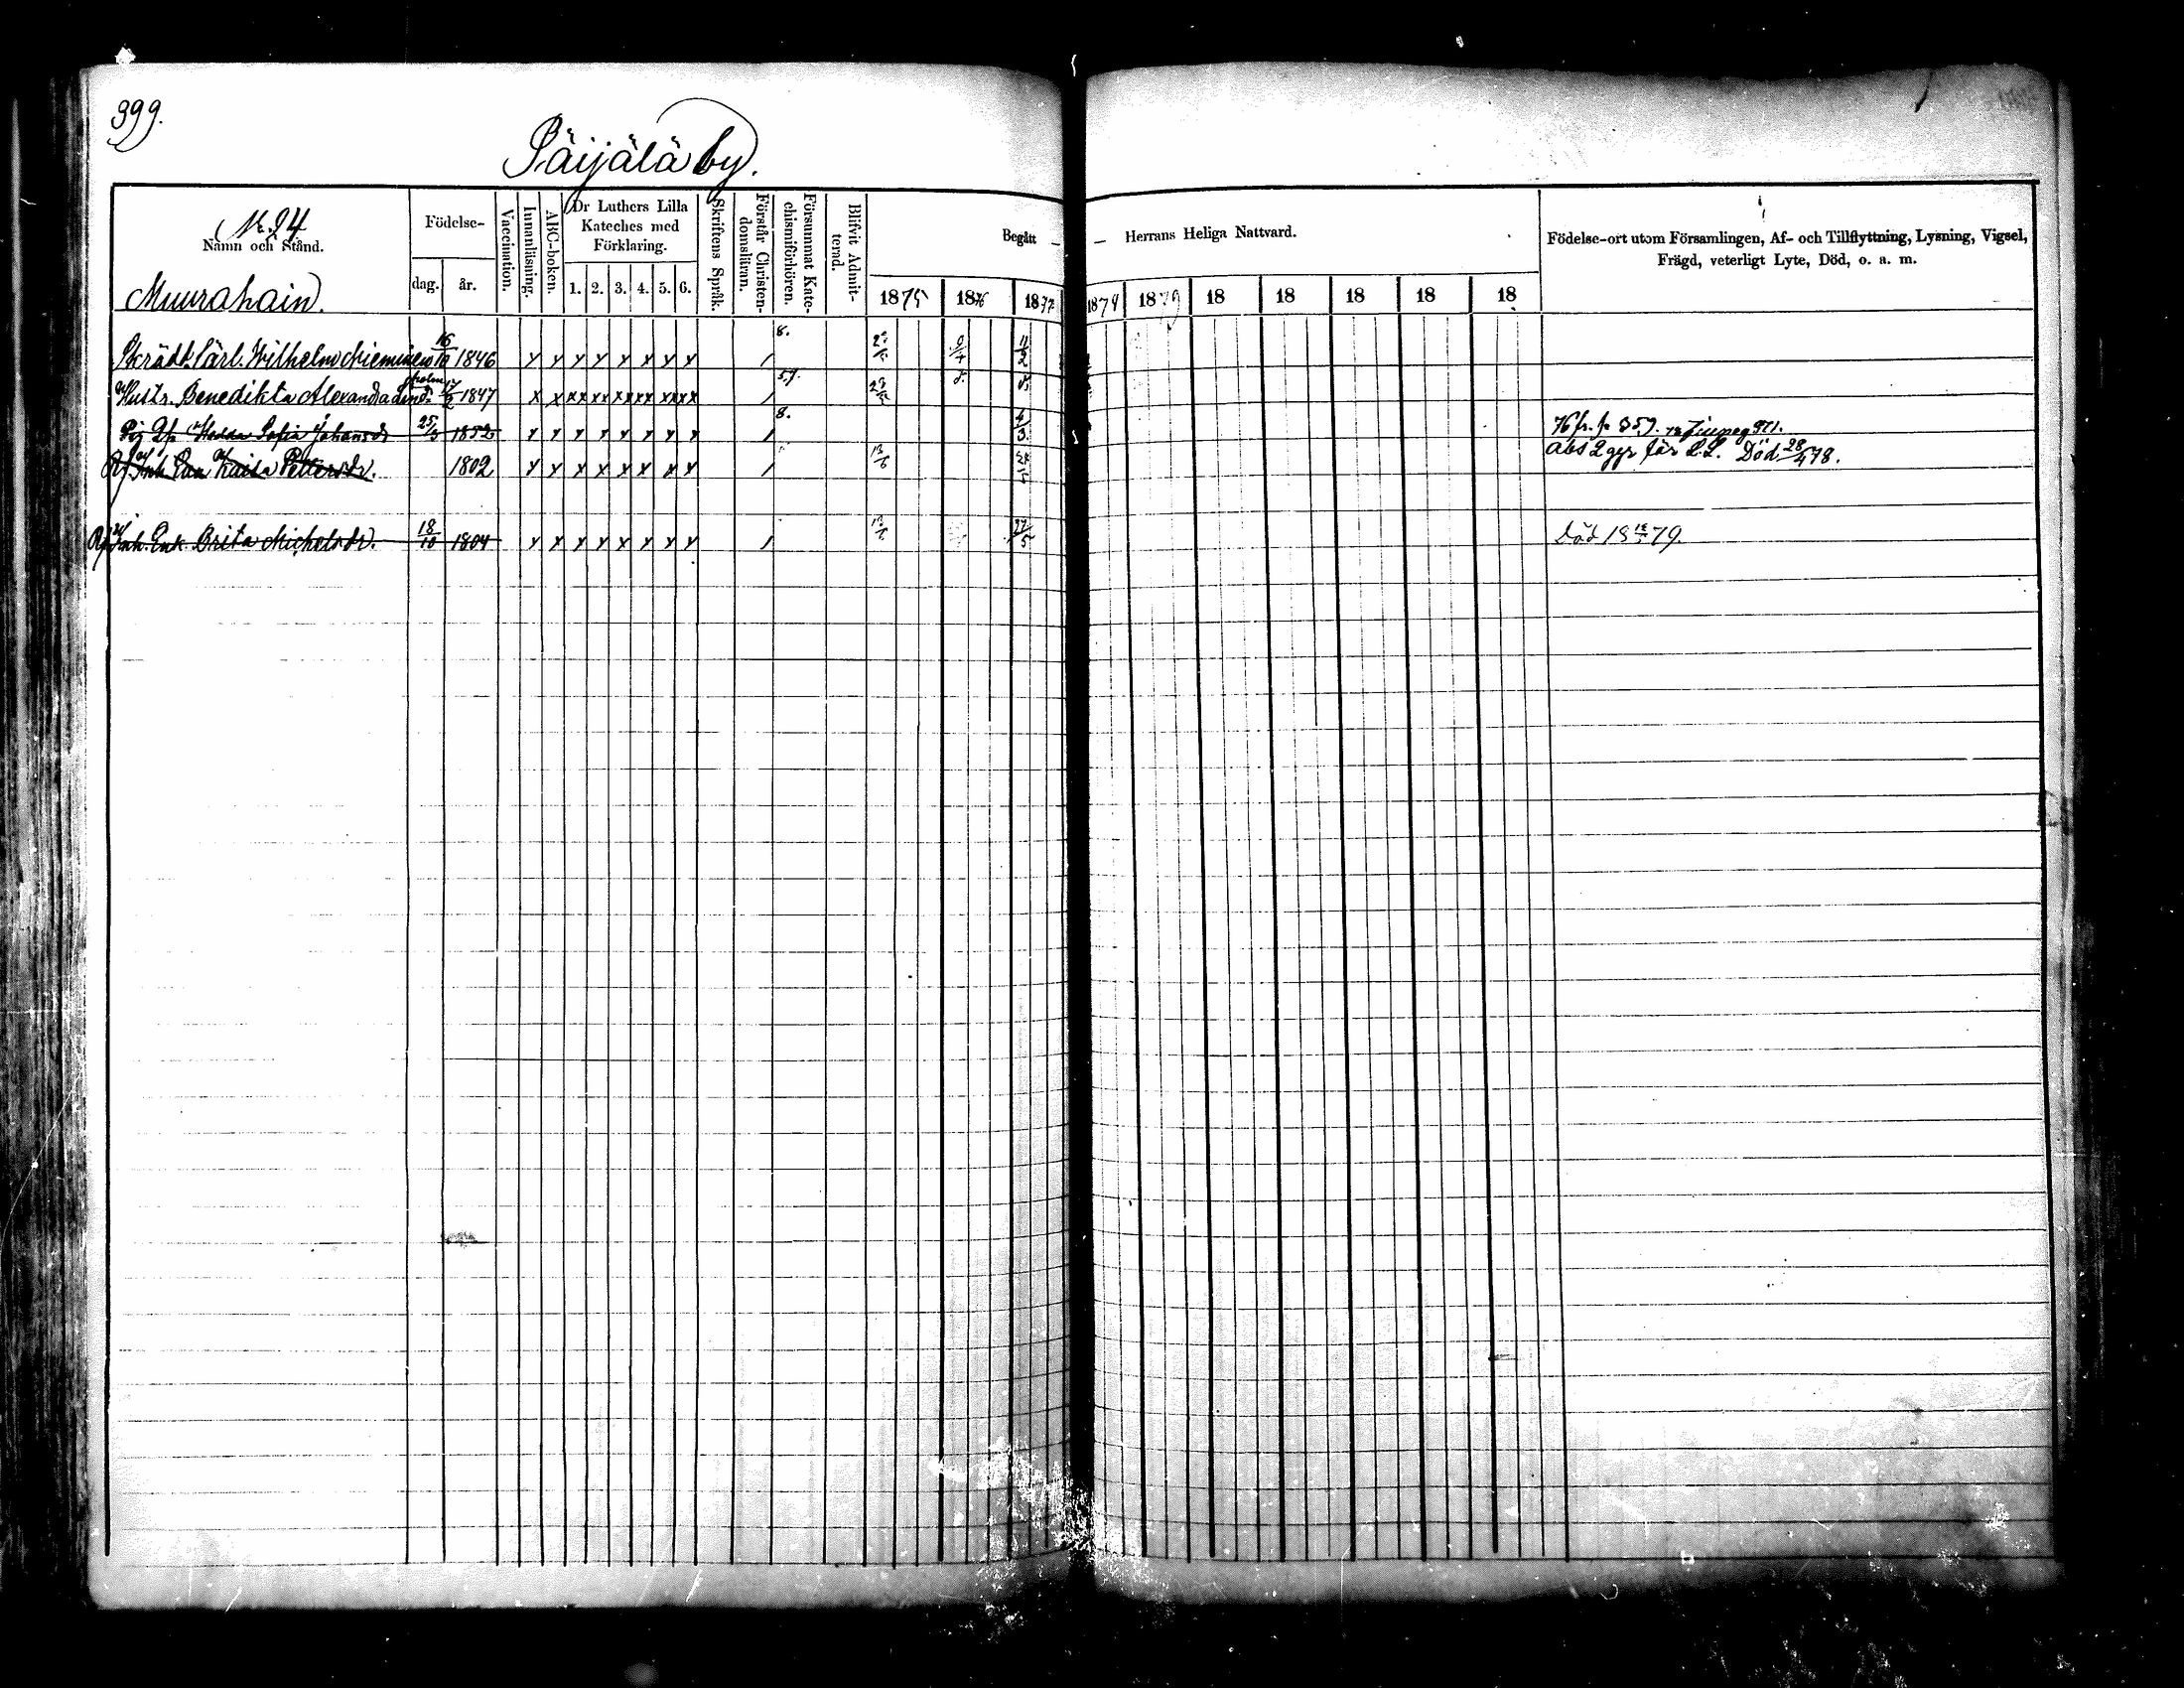 399.
Päijälä by.
No. 24
Namn och Stånd.
Födelse-
dag. år.
Vaccination.
Innanläsning.
ABC-boken.
Dr Luthers Lilla
Kateches med
Förklaring.
1. 2. 3. 4. 5. 6.
Skriftens Språk.
Förstår Christen-
domsläran.
Försummat Kate-
chismiförhören.
Blifvit Admit-
terad.
Begått
Herrans Heliga Nattvard.
1875 1876 1877 1878 1879 18 18 18 18 18
Födelse-ort utom Församlingen, Af- och Tillflyttning, Lysning, Vigsel,
Frägd, veterligt Lyte, Död, o. a. m.
Muurahain.
Skrädd. Wilhelm Nieminen 16/10 1846 8. 11/2
Hustr. Benedikta Alexandra 17/2 1847 5,7.
Pig Hedda Sofia Johansdr 25/3 1852 8. 76 fr. p 359.
Inh. Enk Kaisa Pettersdr. 1802 abs 2 ggr för L.L. Död 28/4 78.
Inh. Enk. Brita Michelsdr. 18/10 1804 27/5 död 18 79.